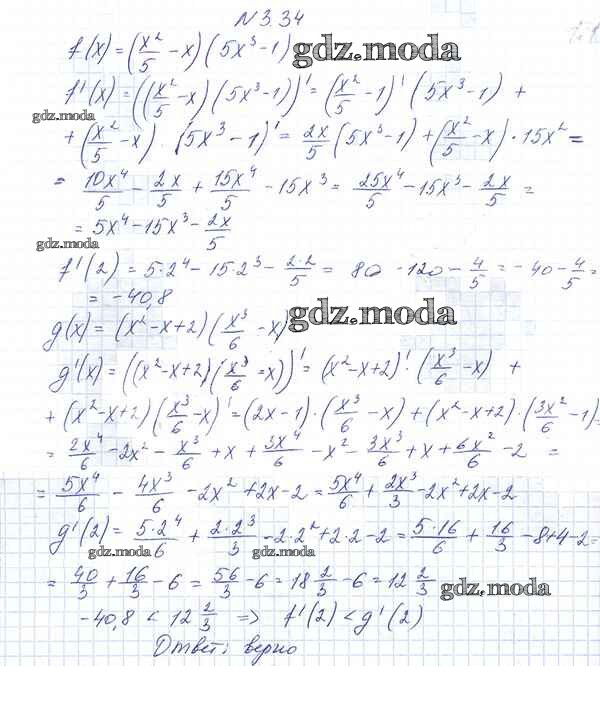 № 3.34
f(x) = (x²/5 - x)(5x³-1)
gdz.moda
f'(x) = ((x²/5 - x)(5x³-1))' = (x²/5 - 1)' (5x³-1) +
gdz.moda
+ (x²/5 - x) · (5x³-1)' = 2x/5 (5x³-1) + (x²/5 - x) · 15x² =
= 10x⁴/5 - 2x/5 + 15x⁴/5 - 15x³ = 25x⁴/5 - 15x³ - 2x/5 =
= 5x⁴ - 15x³ - 2x/5
gdz.moda
f'(2) = 5·2⁴ - 15·2³ - 2·2/5 = 80 - 120 - 4/5 = -40 - 4/5 =
= -40,8
gdz.moda
g(x) = (x²-x+2)(x³/6 - x)
g'(x) = ((x²-x+2)(x³/6 - x))' = (x²-x+2)' · (x³/6 - x) +
+ (x²-x+2)(x³/6 - x)' = (2x-1) · (x³/6 - x) + (x²-x+2) · (3x²/6 - 1) =
= 2x⁴/6 - 2x² - x³/6 + x + 3x⁴/6 - x² - 3x³/6 + x + 6x²/6 - 2 =
= 5x⁴/6 - 4x³/6 - 2x² + 2x - 2 = 5x⁴/6 + 2x³/3 - 2x² + 2x - 2
g'(2) = 5·2⁴/6 + 2·2³/3 - 2·2² + 2·2 - 2 = 5·16/6 + 16/3 - 8+4-2 =
gdz.moda gdz.moda
= 40/3 + 16/3 - 6 = 56/3 - 6 = 18 2/3 - 6 = 12 2/3
gdz.moda
-40,8 < 12 2/3 => f'(2) < g'(2)
Ответ: верно
gdz.moda